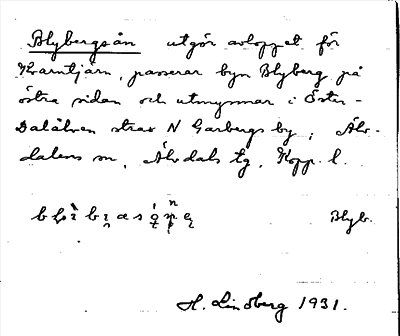 Blybergsån utgör avloppet för
Kvarntjärn, passerar byn Blyberg på
östra sidan och utmynnar i Öster-
Dalälven strax N Garbergs by, Älv-
dalens sn, Älvdals tg, Kopp. l.
Blyb.
H. Lindberg 1931.